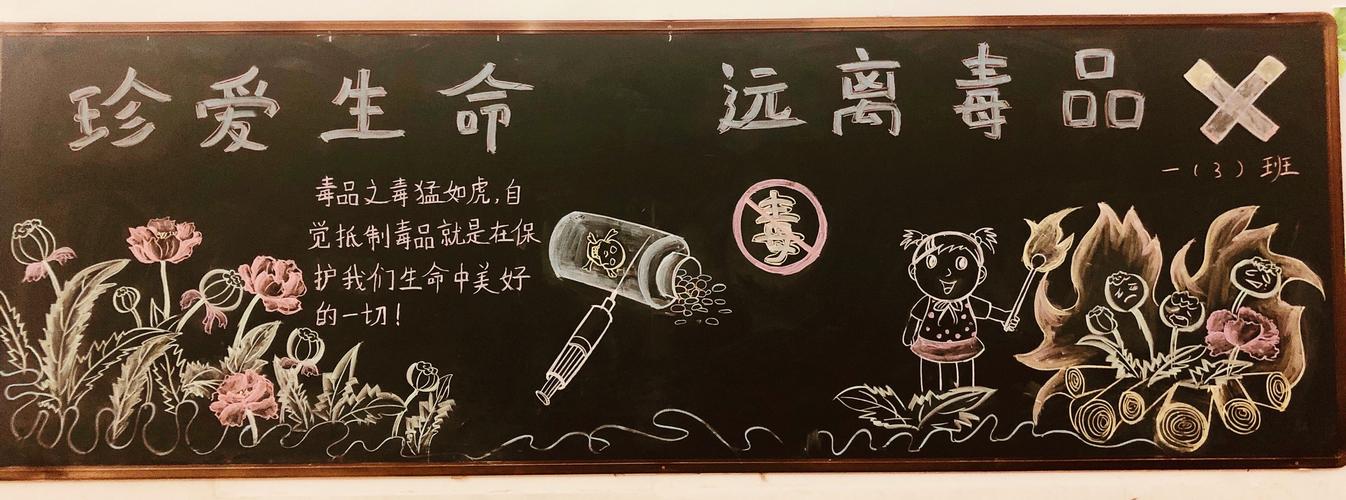 珍爱生命 远离毒品
一(3)班
毒品之毒猛如虎,自
觉抵制毒品就是在保
护我们生命中美好
的一切!
毒